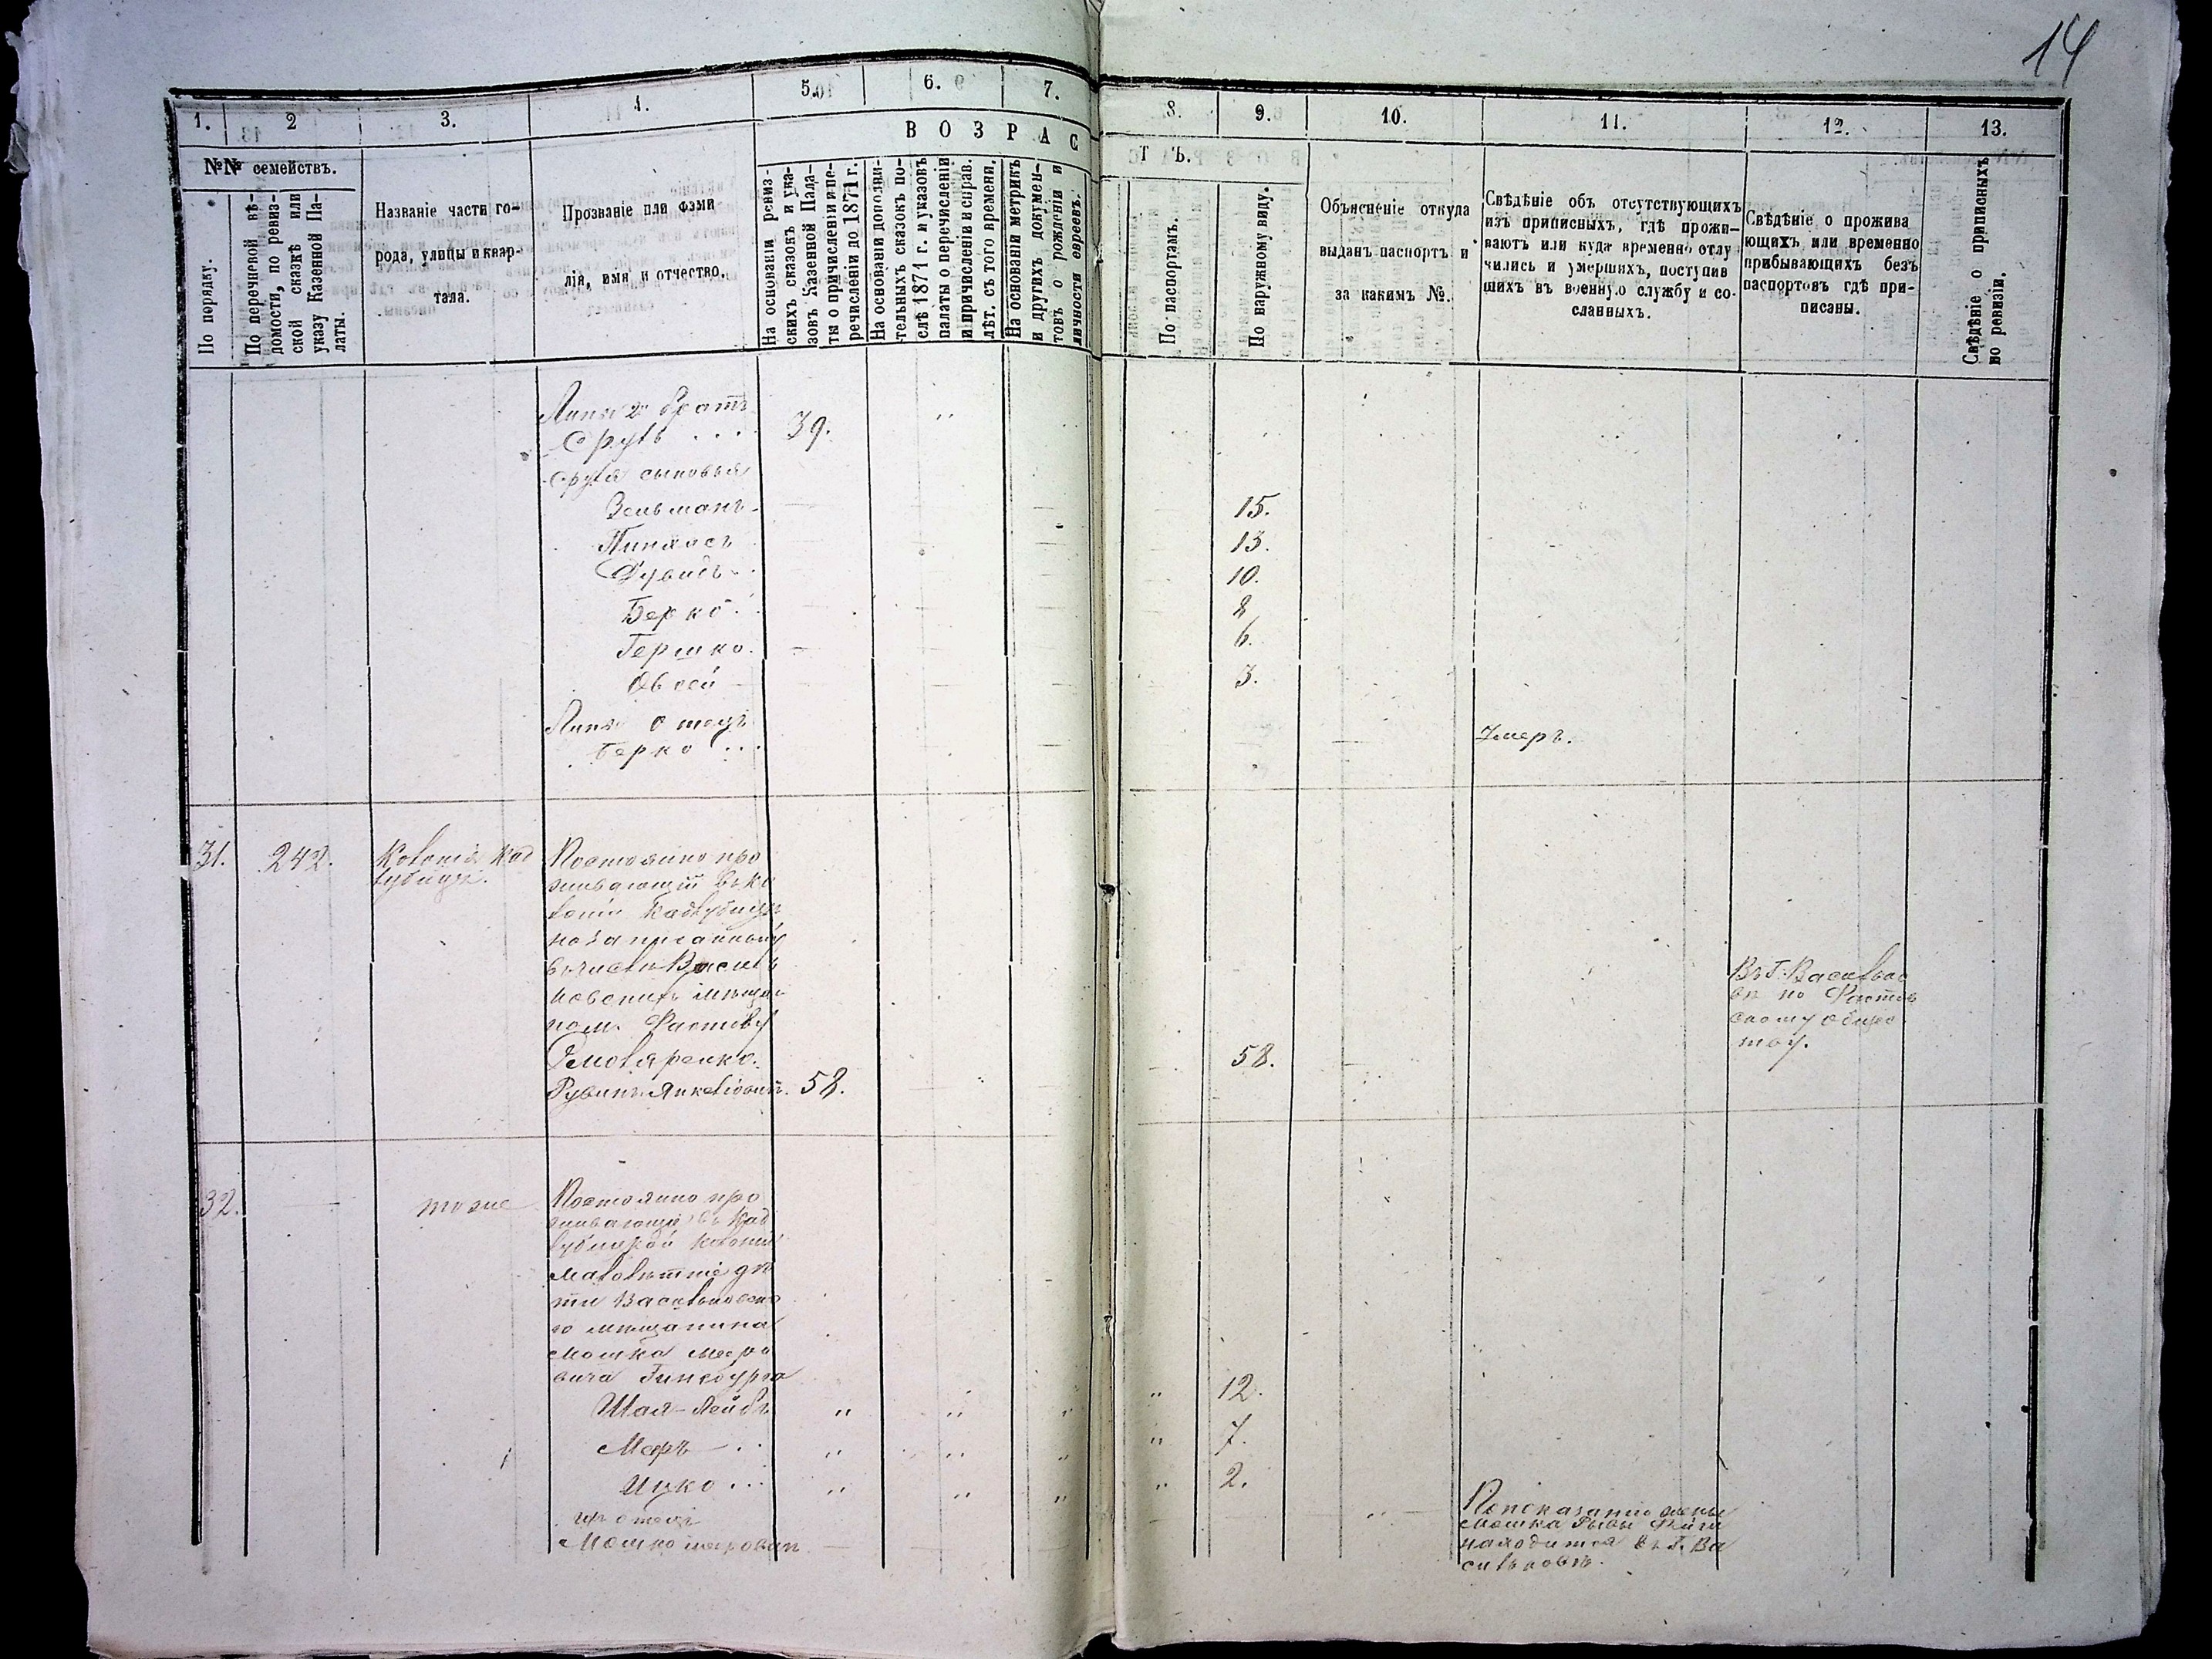 14
1. 2 3. 4. 5. 6. 7. 8. 9. 10. 11. 12. 13.
В О З Р А С Т Ъ.
№№ семействъ.
По порядку.
По перечневой вѣ-
домости, по ревиз-
ской сказкѣ или
указу Казенной Па-
латы.
Названіе части го-
рода, улицы и квар-
тала.
Прозваніе или фами
лія, имя и отчество.
На основаніи ревиз-
скихъ сказокъ и ука-
зовъ Казенной Пала-
ты о причисленіи и пе-
речисленіи до 1871 г.
На основаніи дополни-
тельныхъ сказокъ по-
слѣ 1871 г. и указовъ
палаты о перечисленіи
и причисленіи и справ.
лѣт. съ того времени.
На основаніи метрикъ
и другихъ докумен-
товъ о рожденіи и
личности евреевъ.
По паспортамъ.
По наружному виду.
Объясненіе откуда
выданъ паспортъ и
за какимъ №.
Свѣдѣніе объ отсутствующихъ
изъ приписныхъ, гдѣ прожи-
ваютъ или куда временно отлу
чились и умершихъ, поступив
шихъ въ военную службу и со-
сланныхъ.
Свѣдѣніе о прожива
ющихъ или временно
прибывающихъ безъ
паспортовъ гдѣ при-
писаны.
Свѣдѣніе о приписныхъ
по ревизіи.
братъ
Сруль . . . . 39.
Сруля сыновья
Зельманъ 15.
Пинхасъ 13.
Дувидъ 10.
Берко 8
Гершко. 6.
Овсей 3.
отецъ
Берко . . . Умеръ.
31. 242. Колонія Кад
лубица.
Постоянно про
живающій въ ко
лоніи Кадлубицкой
но записанный
въ числѣ Василь
ковскихъ мѣщан
Столяренко.
Рувинъ Янкелiовичъ. 58. 58.
Въ Г. Василько
вѣ по Фастов
скому общес
тву.
32. тоже
Постоянно про
живающіе въ Кад
лубицкой колоніи
малолѣтніе дѣ
ти Васильковска
го мѣщанина
Мошка Меро
вича Гинсбурга
Шая-Лейбъ " " " " 12.
Меръ . . " " " " 7.
Ицко . . . " " " " 2.
ихъ отецъ
Мошко Меровичъ
По показанію жены
Мошка
находится въ Г. Ва
сильковѣ.